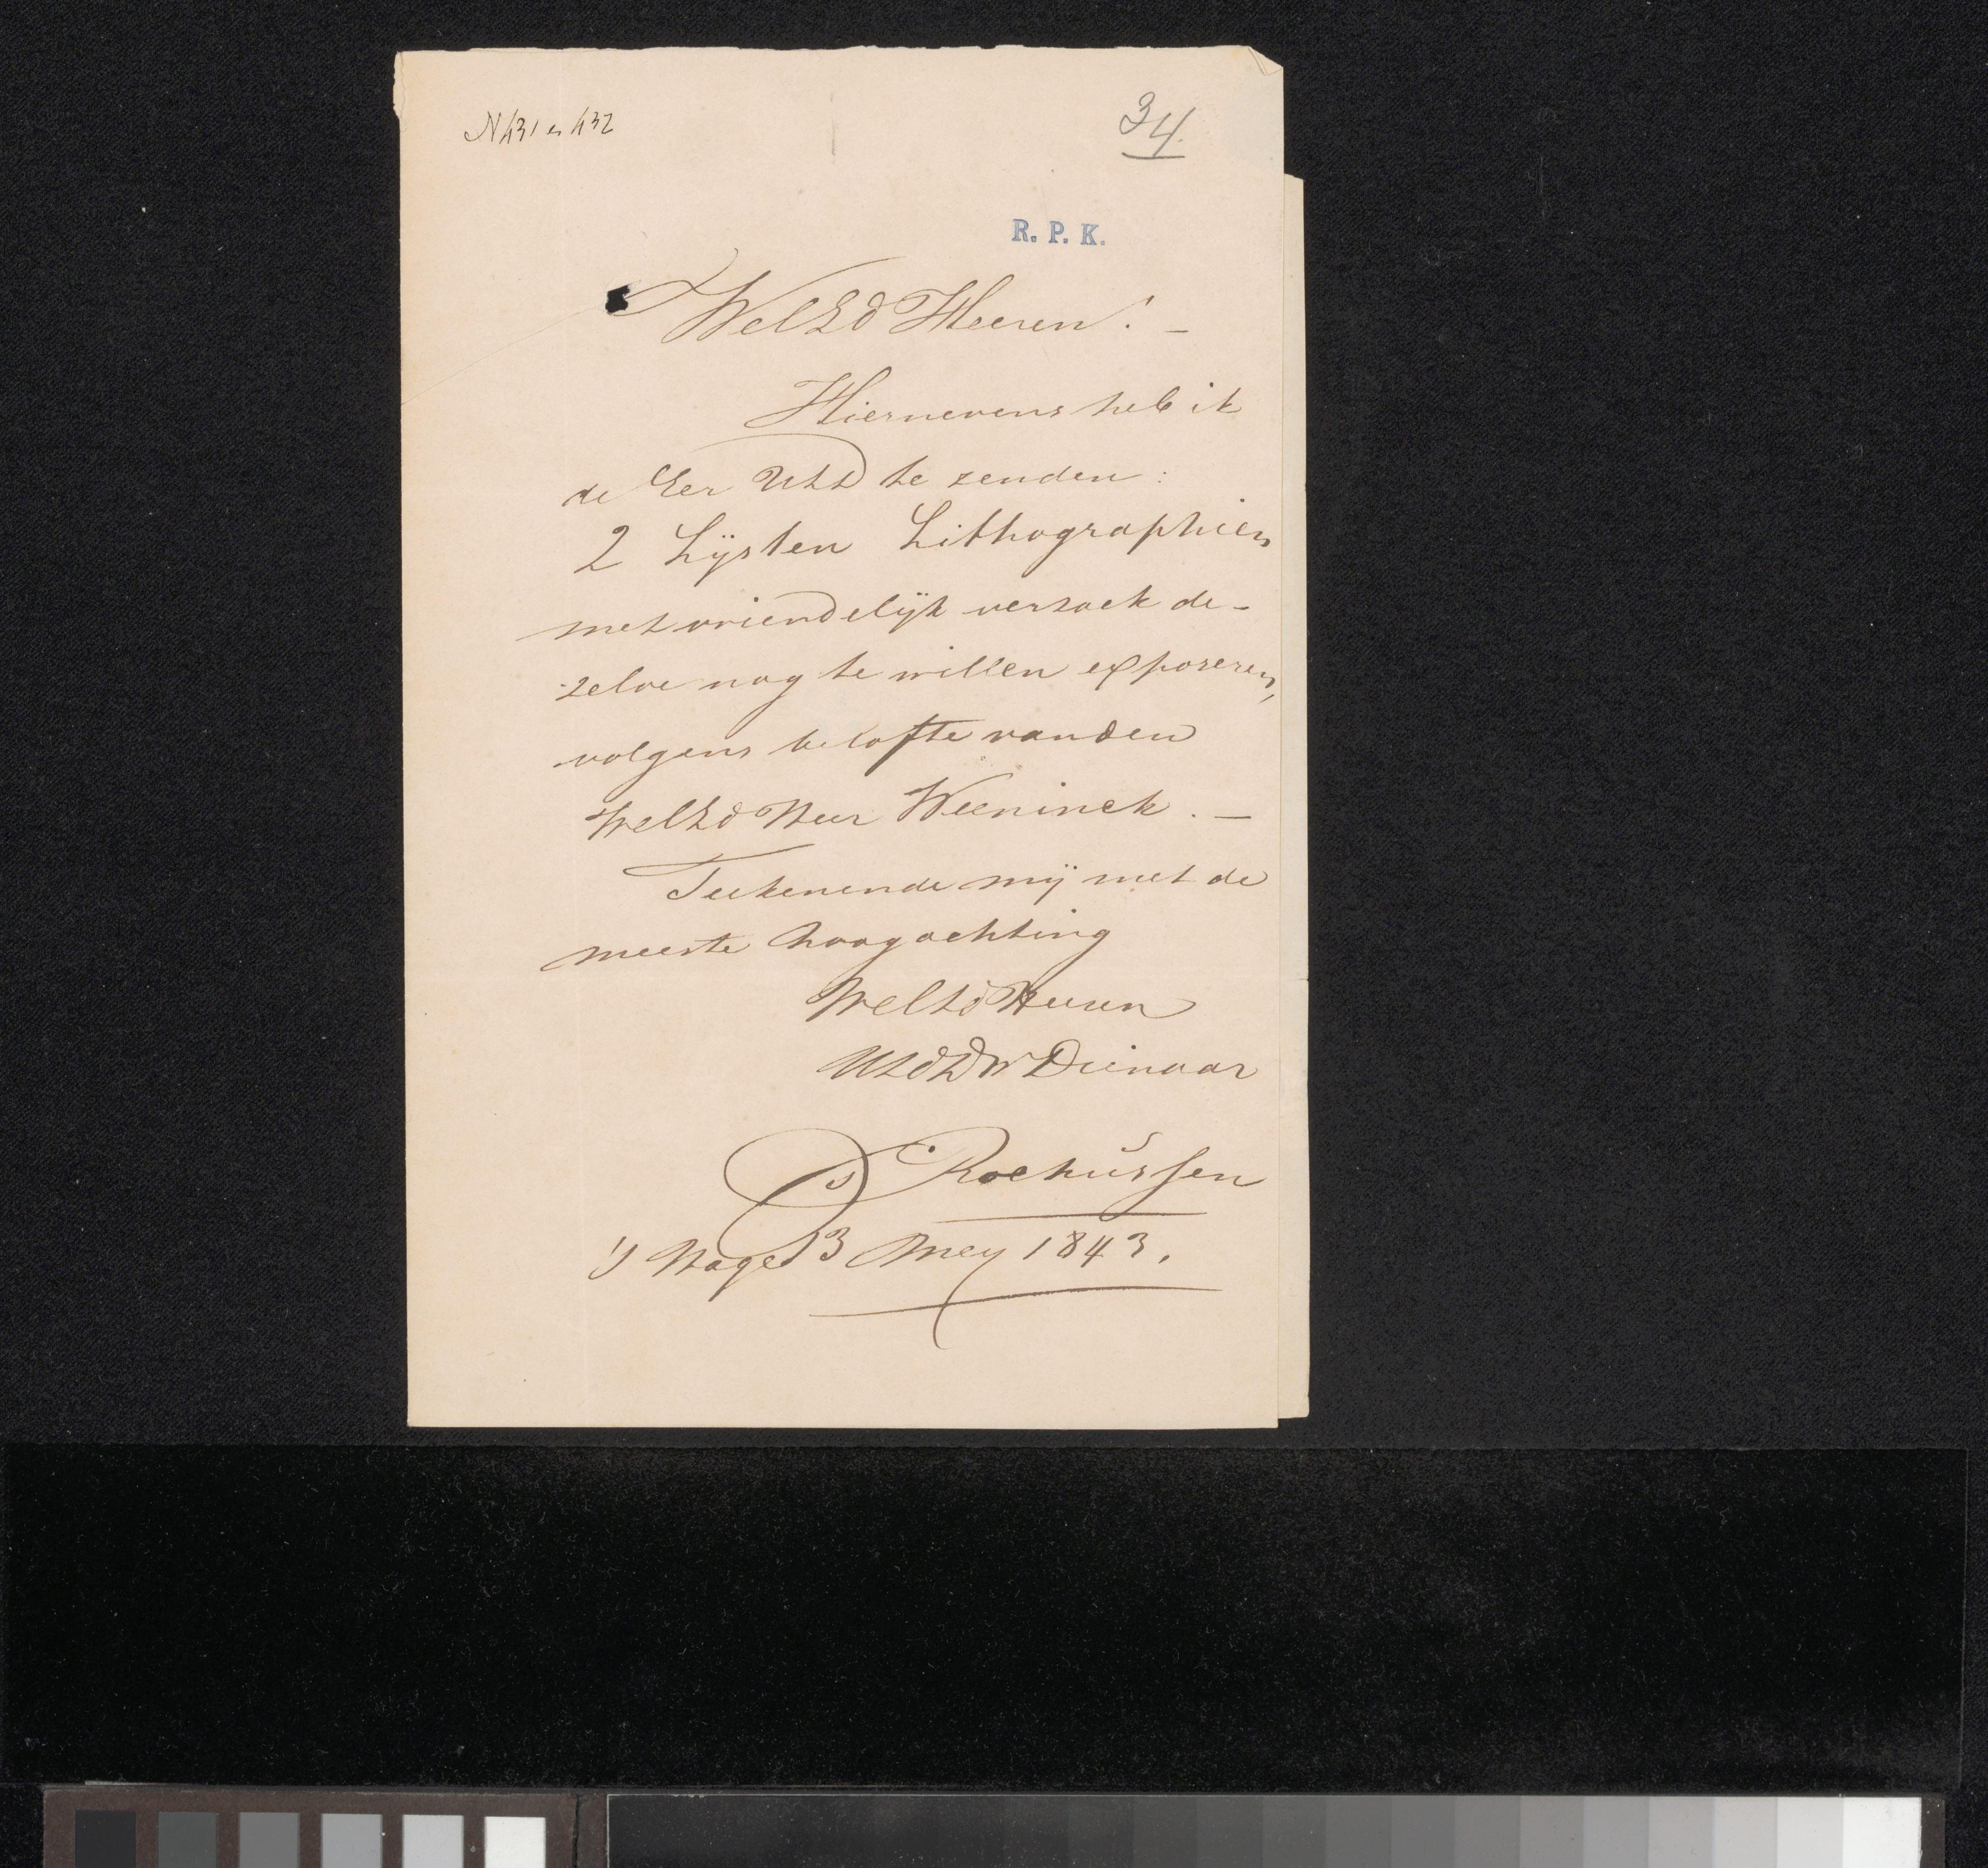 N 431 en 432
34.
R. P. K.
WelEd Heeren! –
Hiernevens heb ik
de Eer UEd te zenden :
2 Lijsten Lithographien
met vriendelijk verzoek de-
zelve nog te willen exposeren,
volgens belofte van den
WelEd Heer Weeninck . –
Teekenende mij met de
meeste hoogachting
WelEd Heeren
UEd Dw Dienaar
Rochussen
's Hage 3 Mey 1843.